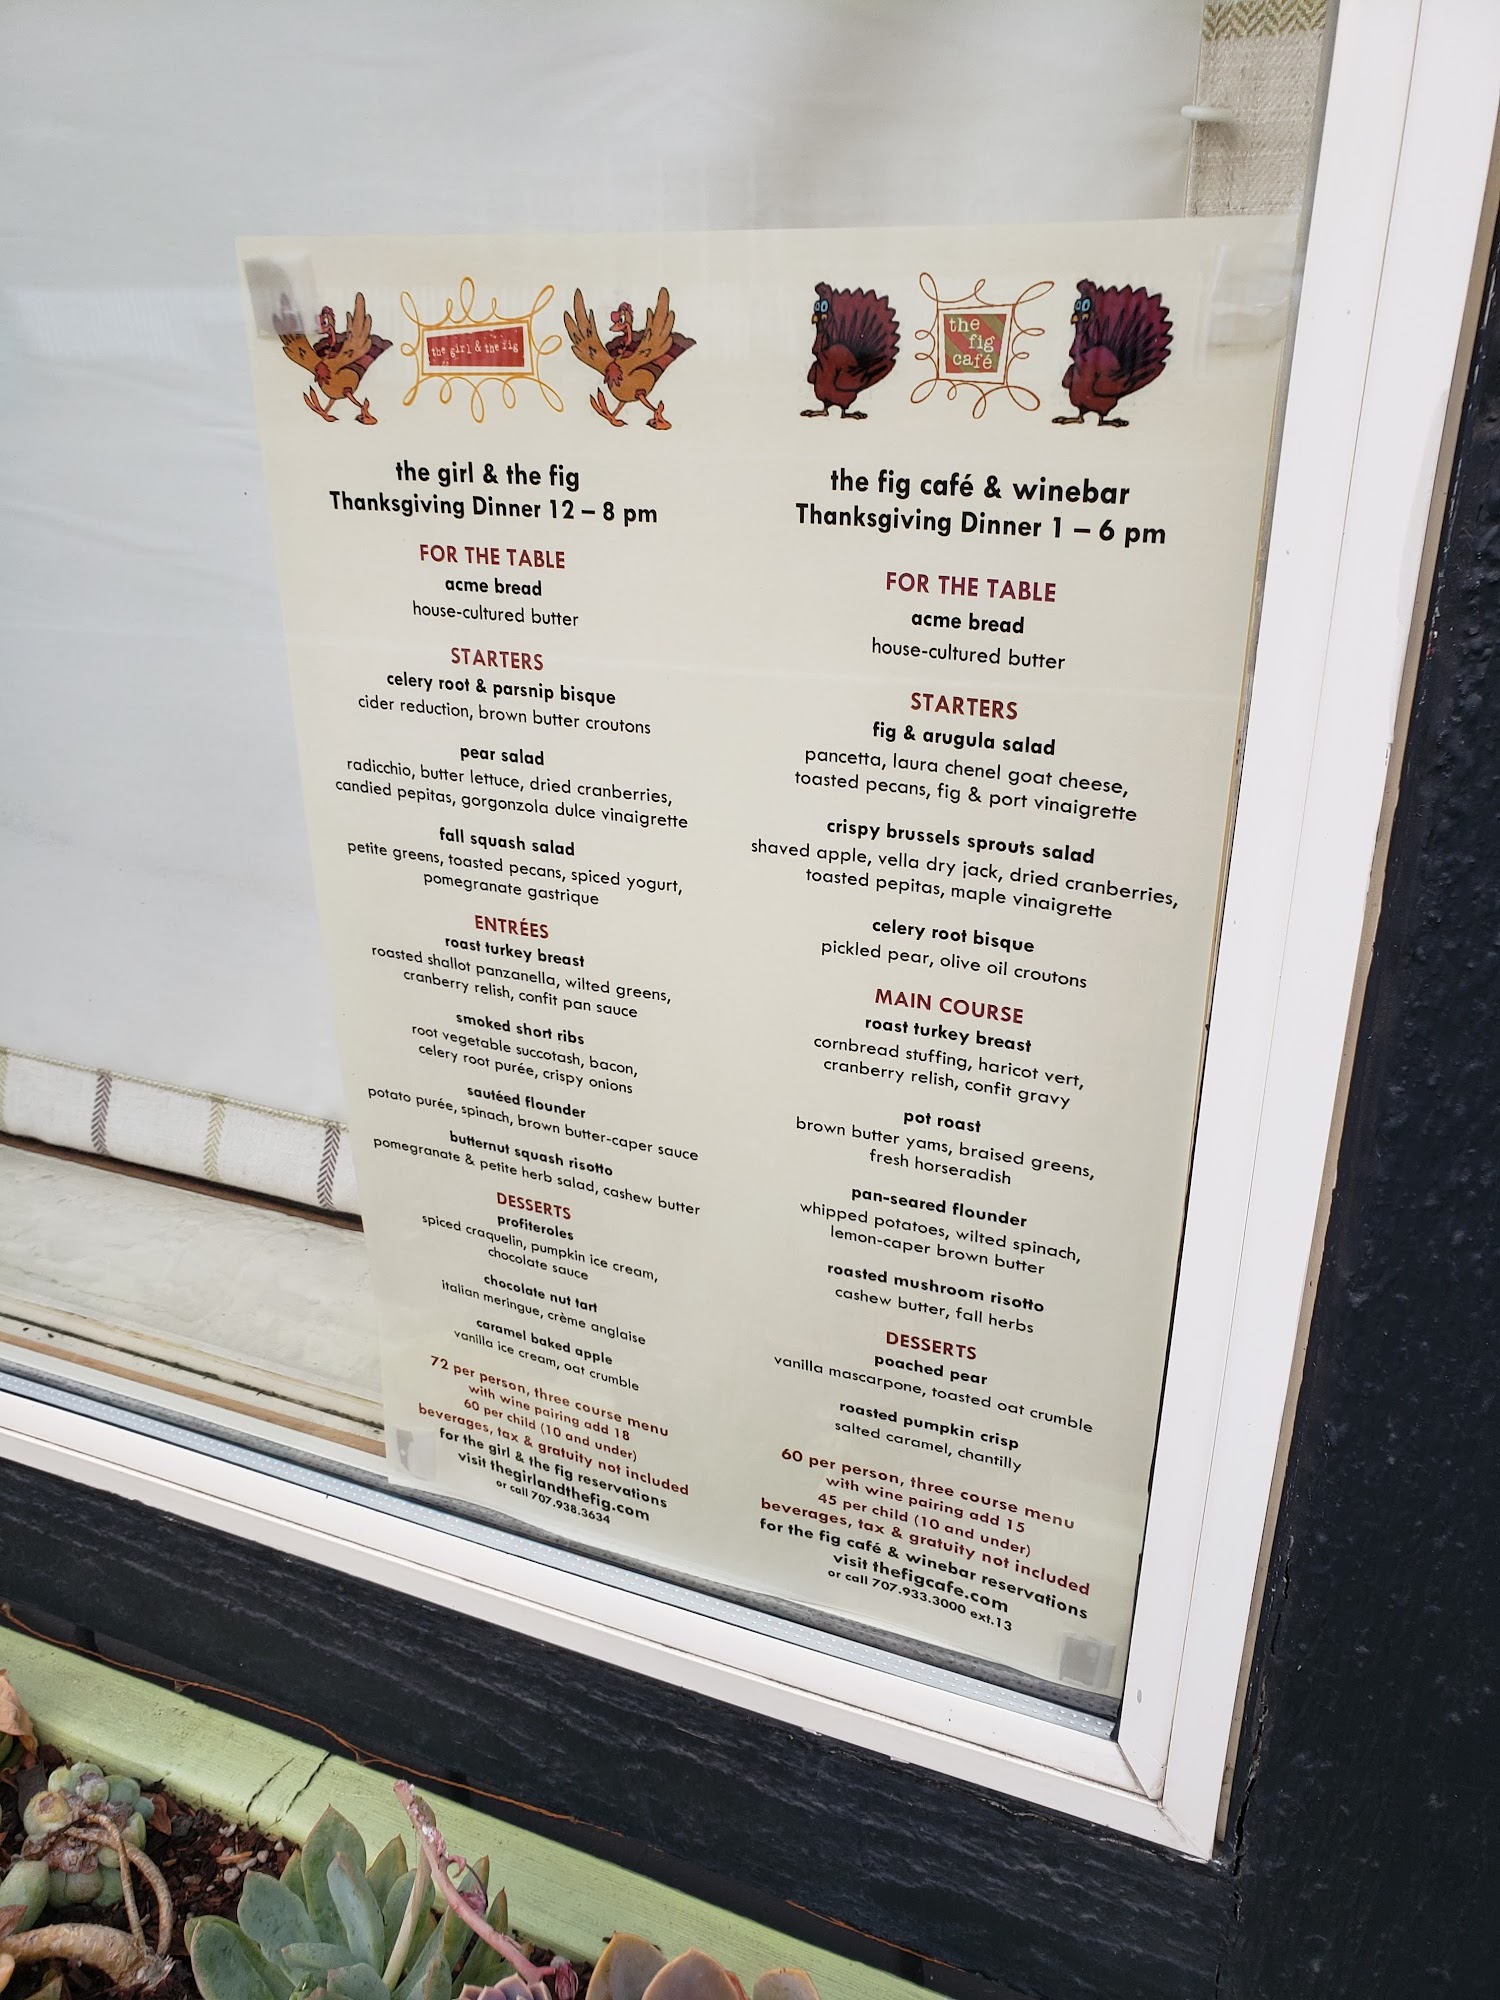 the girl & the fig
the girl & the fig
Thanksgiving Dinner 12 – 8 pm
FOR THE TABLE
acme bread
house-cultured butter
STARTERS
celery root & parsnip bisque
cider reduction, brown butter croutons
pear salad
radicchio, butter lettuce, dried cranberries,
candied pepitas, gorgonzola dulce vinaigrette
fall squash salad
petite greens, toasted pecans, spiced yogurt,
pomegranate gastrique
ENTRÉES
roast turkey breast
roasted shallot panzanella, wilted greens,
cranberry relish, confit pan sauce
smoked short ribs
root vegetable succotash, bacon,
celery root purée, crispy onions
sautéed flounder
potato purée, spinach, brown butter-caper sauce
butternut squash risotto
pomegranate & petite herb salad, cashew butter
DESSERTS
profiteroles
spiced craquelin, pumpkin ice cream,
chocolate sauce
chocolate nut tart
italian meringue, crème anglaise
caramel baked apple
vanilla ice cream, oat crumble
72 per person, three course menu
with wine pairing add 18
60 per child (10 and under)
beverages, tax & gratuity not included
for the girl & the fig reservations
visit thegirlandthefig.com
or call 707.938.3634
the
fig
café
the fig café & winebar
Thanksgiving Dinner 1 – 6 pm
FOR THE TABLE
acme bread
house-cultured butter
STARTERS
fig & arugula salad
pancetta, laura chenel goat cheese,
toasted pecans, fig & port vinaigrette
crispy brussels sprouts salad
shaved apple, vella dry jack, dried cranberries,
toasted pepitas, maple vinaigrette
celery root bisque
pickled pear, olive oil croutons
MAIN COURSE
roast turkey breast
cornbread stuffing, haricot vert,
cranberry relish, confit gravy
pot roast
brown butter yams, braised greens,
fresh horseradish
pan-seared flounder
whipped potatoes, wilted spinach,
lemon-caper brown butter
roasted mushroom risotto
cashew butter, fall herbs
DESSERTS
poached pear
vanilla mascarpone, toasted oat crumble
roasted pumpkin crisp
salted caramel, chantilly
60 per person, three course menu
with wine pairing add 15
45 per child (10 and under)
beverages, tax & gratuity not included
for the fig café & winebar reservations
visit thefigcafe.com
or call 707.933.3000 ext.13